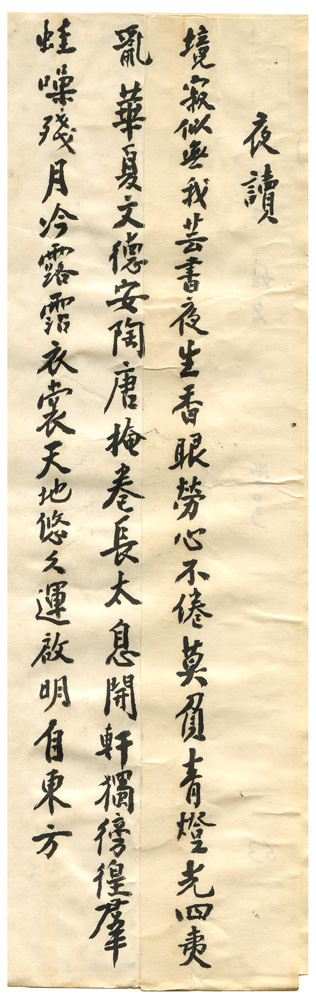 夜讀
境寂似無我芸書夜生香眼勞心不倦莫負青燈光四夷
亂華夏文德安陶唐掩卷長太息開軒獨徬徨羣
蛙噪殘月冷露霑衣裳天地悠久運啟明自東方